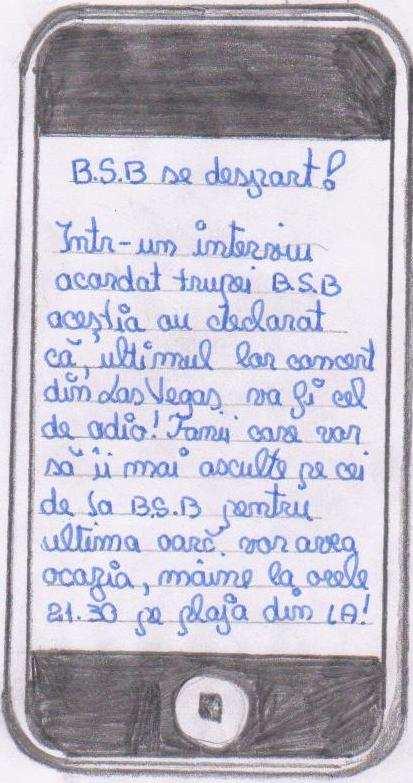 B.S.B se despart!
Intr-un interviu
acordat trupei B.S.B
aceștia au declarat
că, ultimul lor concert
din Las Vegas va fi cel
de adio! Fanii care vor
să îi mai asculte pe cei
de la B.S.B pentru
ultima oară, vor avea
ocazia, mâine la orele
21.30 pe plaja din LA!